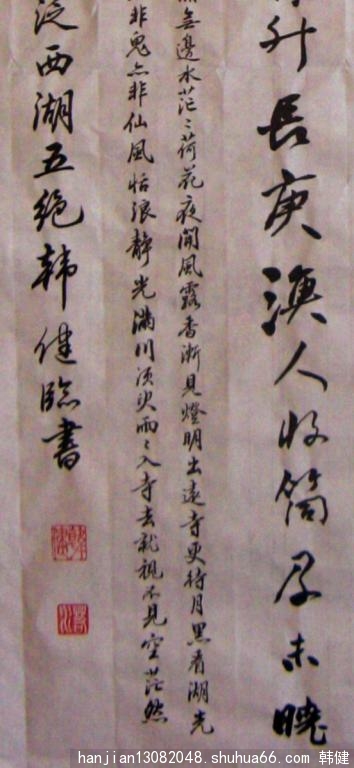 升長庚漁人收筒及未曉
無邊水茫〻荷花夜開風露香漸見燈明出遠寺更待月黑看湖光
非鬼亦非仙風恬浪靜光滿川須臾兩〻入寺去就視不見空茫然
泛西湖五絕韓健臨書
hanjian13082048.shuhua66.com 韩健